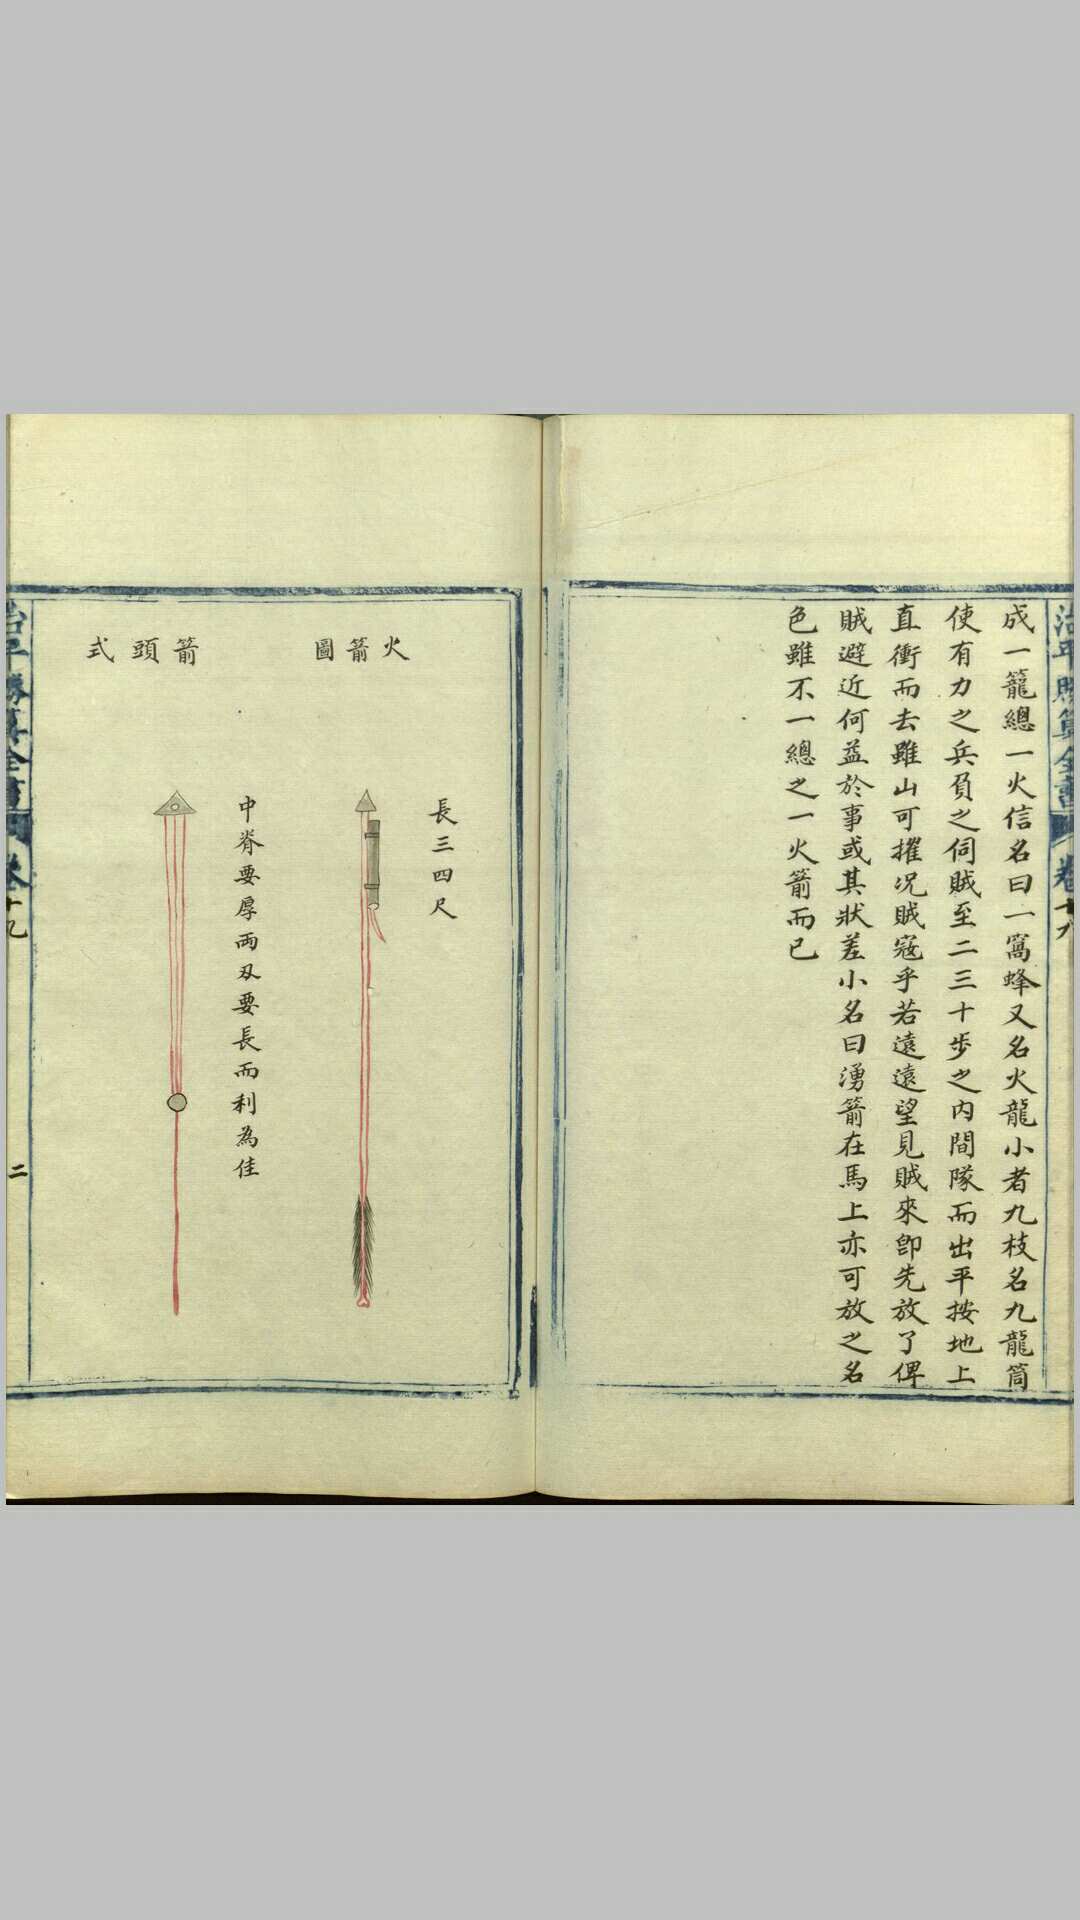 成一籠總一火信名曰一窩蜂又名火龍小者九枝名九龍筒
使有力之兵負之伺賊至二三十步之内間隊而出平按地上
直衝而去雖山可摧况賊寇乎若遠遠望見賊來即先放了俾
賊避近何益於事或其狀差小名曰湧箭在馬上亦可放之名
色雖不一總之一火箭而已
火箭圖
長三四尺
箭頭式
中脊要厚兩刄要長而利為佳
治平勝算全書 卷十九
二